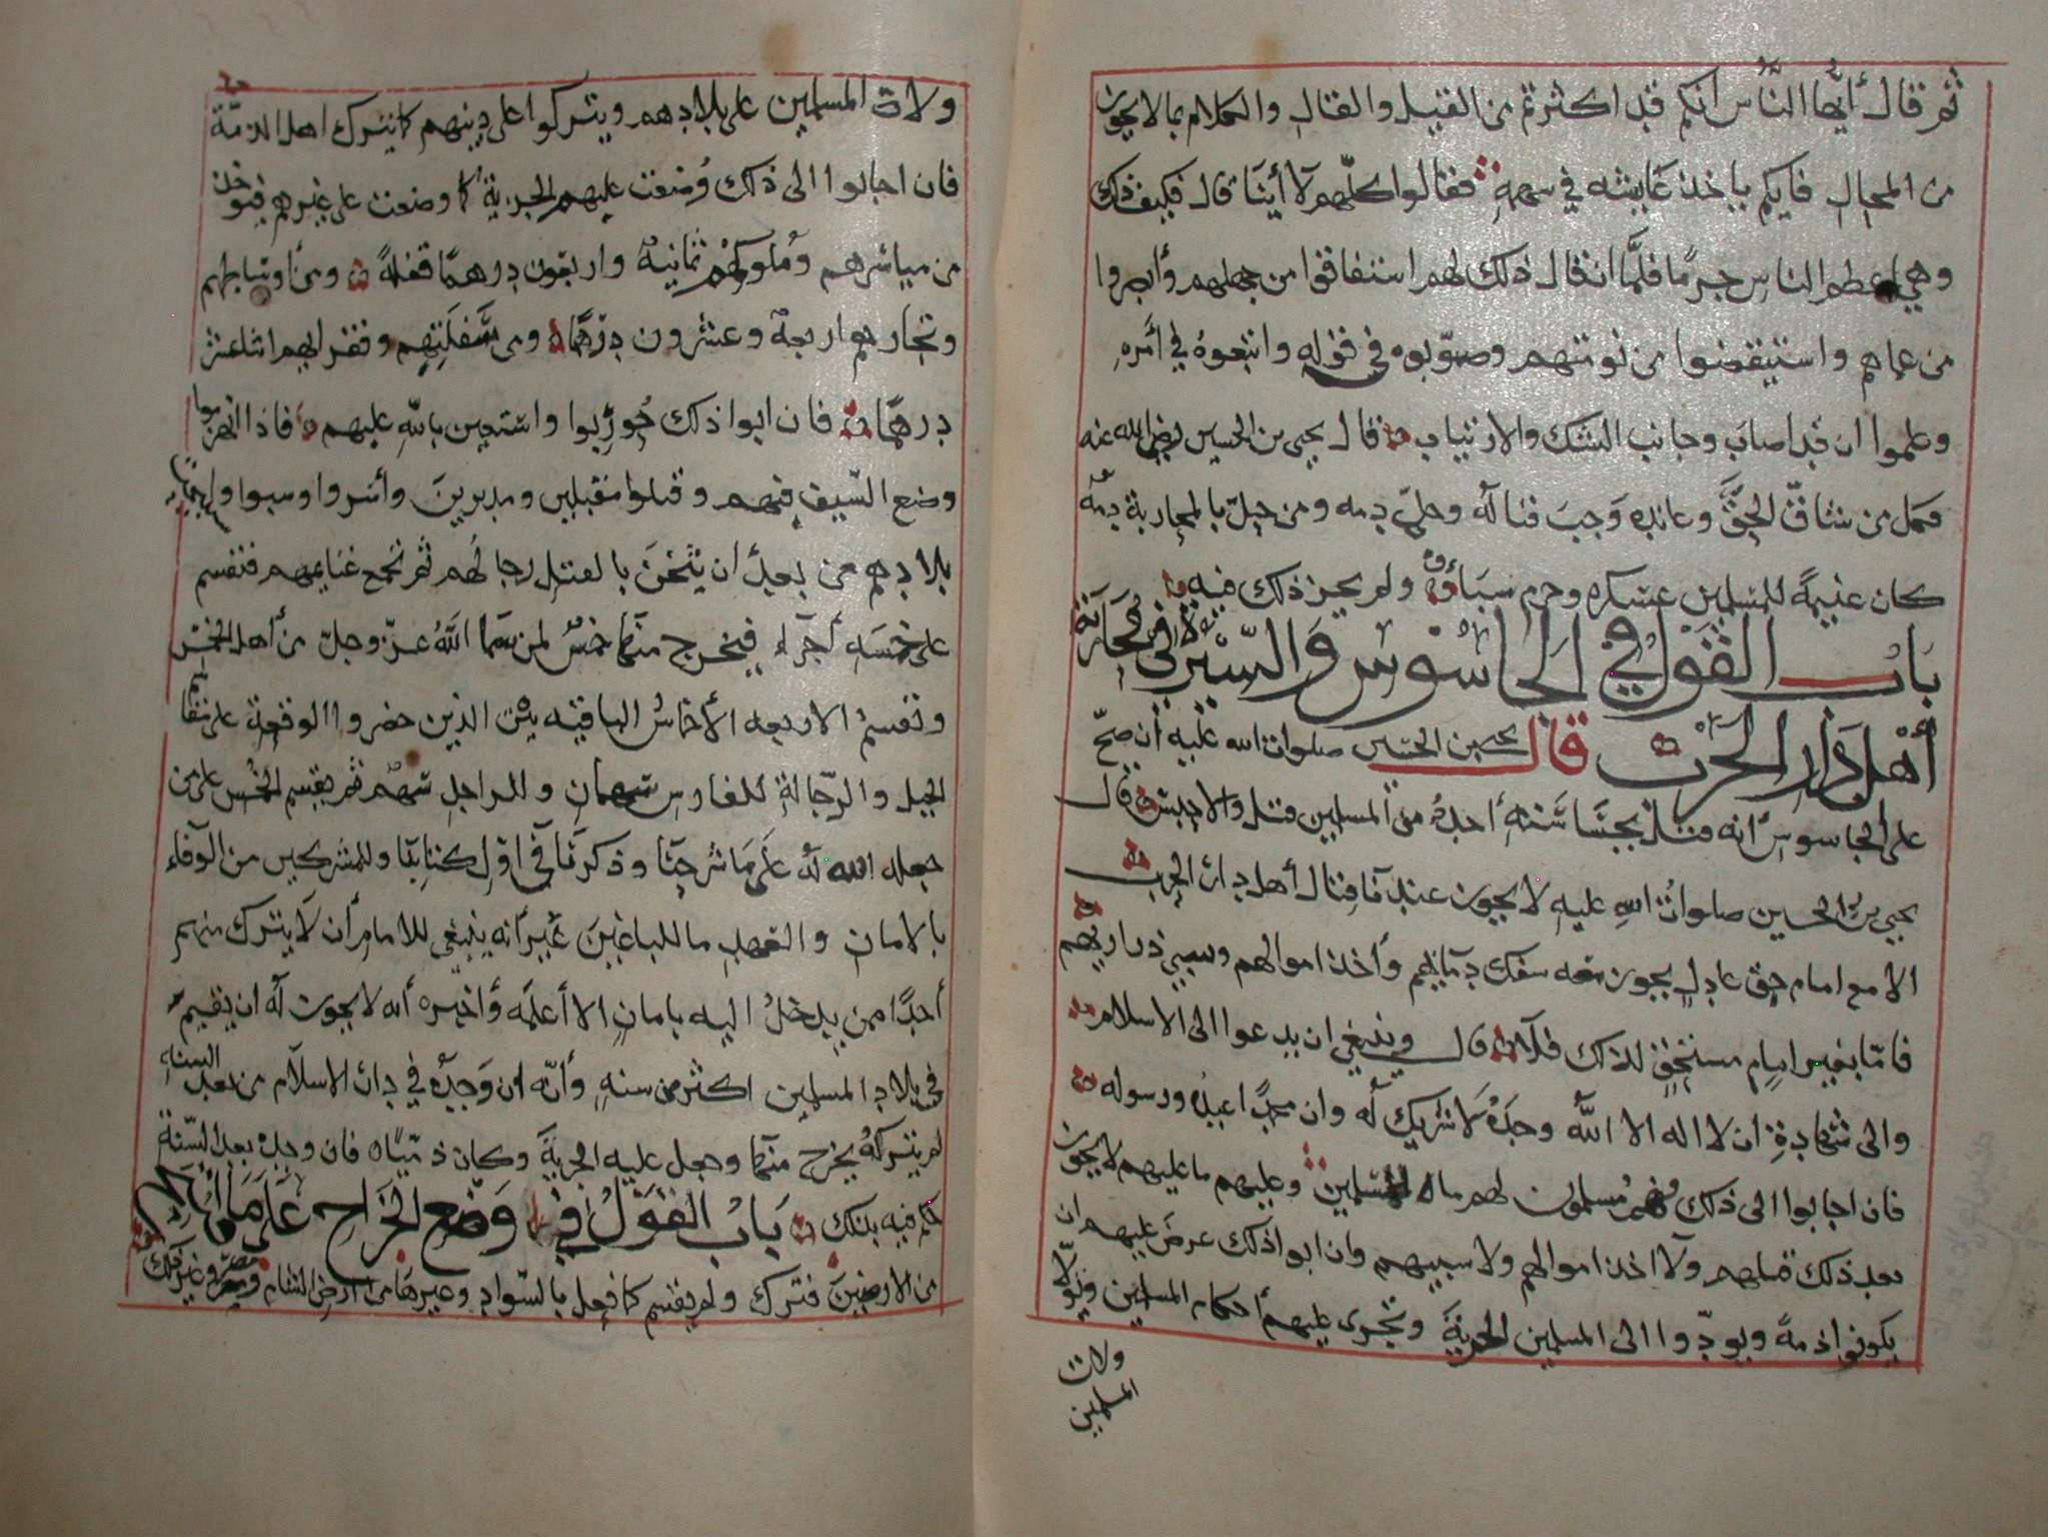 ثم قال أيها الناس انكم قد اكثرتم من القيل والقال والكلام بما لا يجوز
من المحال فايكم ياخذ عايشه في سهمه فقالوا كلهم لا أينا قال فكيف ذلك
وهي اعظم الناس جرما فلما ان قال ذلك لهم استفاقوا من جهلهم وأبصروا
من عماهم واستيقضوا من نومتهم وصوبوه في قوله واتبعوه في أمره
وعلموا ان قد اصاب وجانب الشك والارتياب قال يحيى بن الحسين رضي الله عنه
فكل من شاق الحق وعانده وجب قتاله وحل دمه ومن حل بالمحاربة دمه
كان غنيمة للمسلمين عسكره وحرم سباؤه ولم يجز ذلك فيه
باب القول في الجاسوس والسيرة في محاربة
أهل دار الحرب قال يحيى بن الحسين صلوات الله عليه ان صح
على الجاسوس أنه قتل بجساسته أحد من المسلمين قتل والا حبس قال
يحيى بن الحسين صلوات الله عليه لا يجوز عندنا قتال أهل دار الحرب
الا مع امام حق عادل يجوز معه سفك دمائهم وأخذ اموالهم وسبي ذراريهم
فاما بغير امام مستحق لذلك فلا قال وينبغي ان يدعوا الى الاسلام
والى شهادة ان لا اله الا الله وحده لا شريك له وان محمدا عبده ورسوله
فان اجابوا الى ذلك فهم مسلمون لهم ما للمسلمين وعليهم ما عليهم لا يجوز
بعد ذلك قتلهم ولا اخذ اموالهم ولا سبيهم وان ابوا ذلك عرض عليهم ان
يكونوا ذمة ويودوا الى المسلمين الجزية وتجرى عليهم أحكام المسلمين ويولا
ولات
المسلمين
ولات المسلمين على بلادهم ويتركوا على دينهم كما يترك اهل الذمة
فان اجابوا الى ذلك وضعت عليهم الجزية كما وضعت على غيرهم فيوخذ
من مياسرهم وملوكهم ثمانية واربعون درهما قفلة ومن أوساطهم
وتجارهم اربعة وعشرون درهما ومن سفلتهم وفقرايهم اثنا عشر
درهما فان ابوا ذلك حوربوا واستعين بالله عليهم فاذا انهزموا
وضع السيف فيهم وقتلوا مقبلين ومدبرين وأسروا وسبوا
بلادهم من بعد أن يثخن بالقتل رجالهم ثم تجمع غنايمهم فتقسم
على خمسه أجزاء فيخرج منها خمس لمن سما الله عز وجل من أهل الخمس
وتقسم الاربعه الأخماس الباقيه بين الذين حضروا الوقعة على
الخيل والرجالة للفارس سهمان وللراجل سهم ثم يقسم الخمس على من
جعله الله له على ما شرحنا وذكرنا في اول كتابنا وللمشركين من الوفاء
بالامان والعهد ما للباغين غير أنه ينبغي للامام أن لا يترك منهم
أحدا ممن يدخل اليه بامان الا أعلمه وأخبره أنه لا يجوز له ان يقيم
في بلاد المسلمين اكثر من سنه وأنه ان وجده في دار الاسلام من بعد السنه
لم يتركه يخرج منها وجعل عليه الجزية وكان ذميا فان وجده بعد السنة
حكم فيه بذلك باب القول في وضع الخراج على ما
من الارضين فترك ولم يقسم كما فعل بالسواد وغيرها من ارض الشام ومصر وغير ذلك